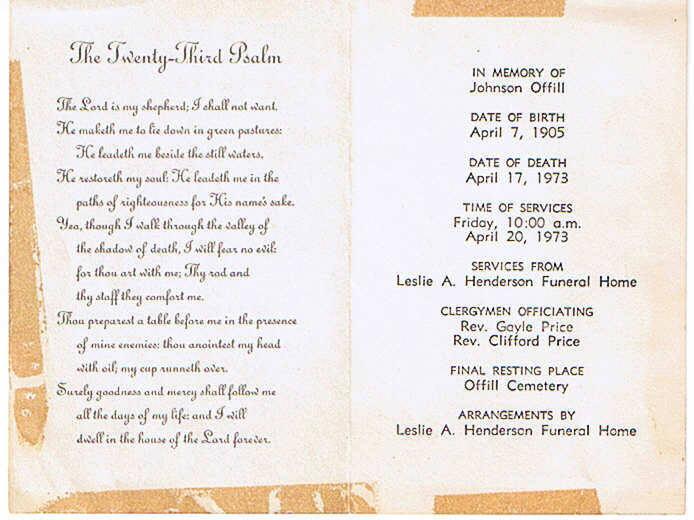 The Twenty-Third Psalm
The Lord is my shepherd; I shall not want.
He maketh me to lie down in green pastures:
He leadeth me beside the still waters.
He restoreth my soul: He leadeth me in the
paths of righteousness for His name's sake.
Yea, though I walk through the valley of
the shadow of death, I will fear no evil:
for thou art with me; Thy rod and
thy staff they comfort me.
Thou preparest a table before me in the presence
of mine enemies: thou anointest my head
with oil; my cup runneth over.
Surely goodness and mercy shall follow me
all the days of my life: and I will
dwell in the house of the Lord forever.
IN MEMORY OF
Johnson Offill
DATE OF BIRTH
April 7, 1905
DATE OF DEATH
April 17, 1973
TIME OF SERVICES
Friday, 10:00 a.m.
April 20, 1973
SERVICES FROM
Leslie A. Henderson Funeral Home
CLERGYMEN OFFICIATING
Rev. Gayle Price
Rev. Clifford Price
FINAL RESTING PLACE
Offill Cemetery
ARRANGEMENTS BY
Leslie A. Henderson Funeral Home